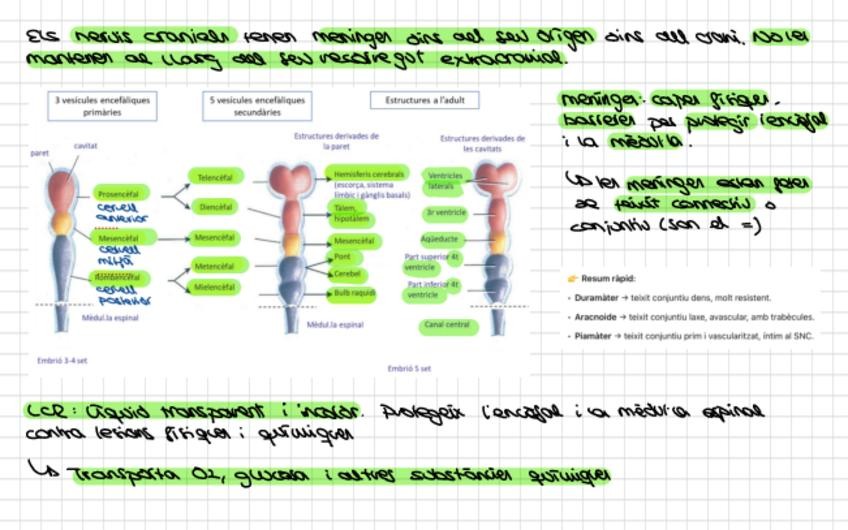 Els nervis cranials tenen meninges dins del seu origen dins del crani. No les
mantenen al llarg del seu recorregut extracranial.
3 vesícules encefàliques primàries
5 vesícules encefàliques secundàries
Estructures a l'adult
meninges: capes físiques.
barreres per protegir l'encèfal
i la mèdul·la.
↳ les meninges estan fetes
de teixit connectiu o
conjuntiu (son el =)
paret
cavitat
Estructures derivades de la paret
Estructures derivades de les cavitats
Prosencèfal
cervell anterior
Mesencèfal
cervell mitjà
Rombencèfal
cervell posterior
Mèdul.la espinal
Embrió 3-4 set
Telencèfal
Diencèfal
Mesencèfal
Metencèfal
Mielencèfal
Hemisferis cerebrals
(escorça, sistema
límbic i gànglis basals)
Tàlem,
hipotàlem
Mesencèfal
Pont
Cerebel
Bulb raquidi
Mèdul.la espinal
Ventricles
laterals
3r ventricle
Aqüeducte
Part superior 4t
ventricle
Part inferior 4t
ventricle
Canal central
Embrió 5 set
👉 Resum ràpid:
• Duramàter → teixit conjuntiu dens, molt resistent.
• Aracnoide → teixit conjuntiu laxe, avascular, amb trabècules.
• Piamàter → teixit conjuntiu prim i vascularitzat, íntim al SNC.
LCR: líquid transparent i incolor. Protegeix l'encèfal i la mèdul·la espinal
contra lesions físiques i químiques
↳ Transporta O2, glucosa i altres substàncies químiques